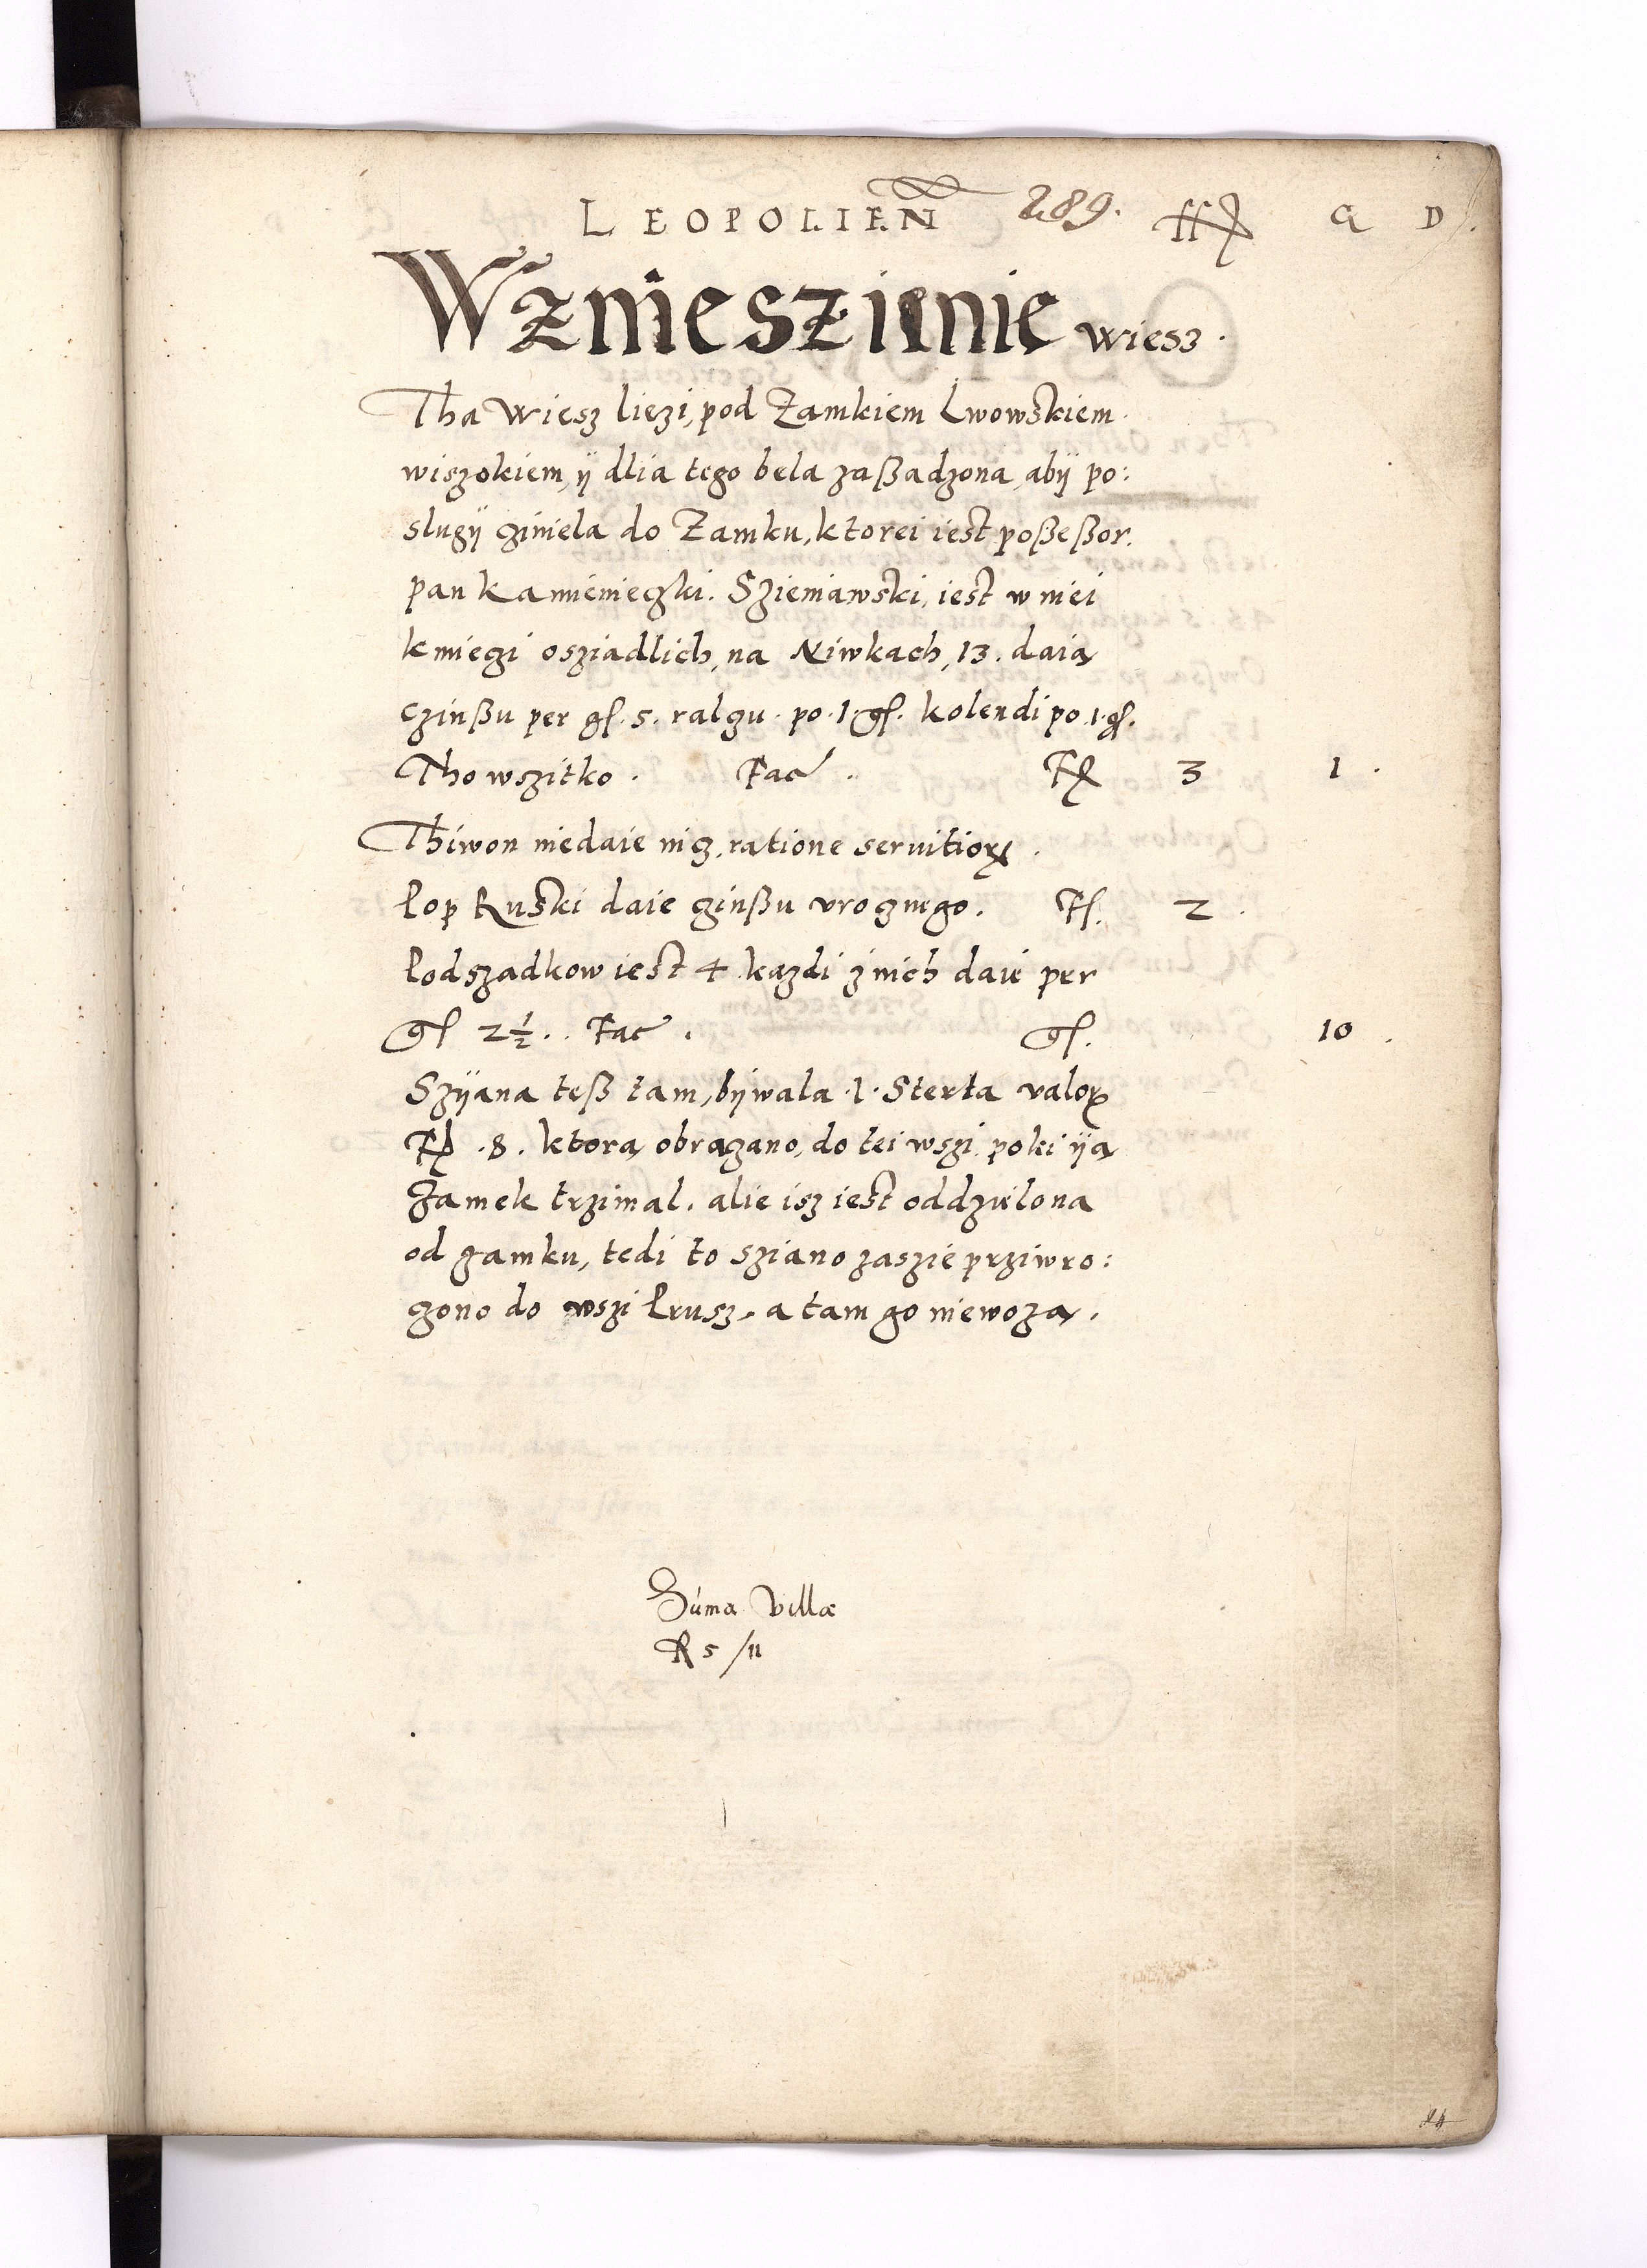 LEOPOLIEN 289. ff G D.
Wznieszienie wiesz.
Tha wiesz liezi, pod Zamkiem Lwowskiem
wiszokiem, ÿ dlia tego bela zaßadzona, abÿ po:
slugÿ cziniela do Zamku, ktorei iest poßeßor.
pan Kamienieczki. Szieniawski, iest w niei
kmieczi osziadlich, na Niwkach, 13. daią
czinßu per gſ. 5. ralczu. po. 1. gſ. kolendi po. 1. gſ.
Tho wszitko. Fac. Ff 3 1.
Thiwon niedaie nicz, ratione seruitiorum.
Pop Ruski daie czinßu vrocznego. Ff. 2.
Podszadkow iest 4 kazdi z nich daie per
gſ 2½.. Fac. gſ. 10.
Szÿana teß tam, bÿwala. 1. Sterta valoris
Ff. 8. ktorą obraczano, do tei wszi poki ÿą
Zamek trzimal. alie isz iest oddzielona
od zamku, tedi to sziano zaszie prziwro:
czono do wszi Prusz, a tam go niewożą.
Suma Villæ
R 5 /11